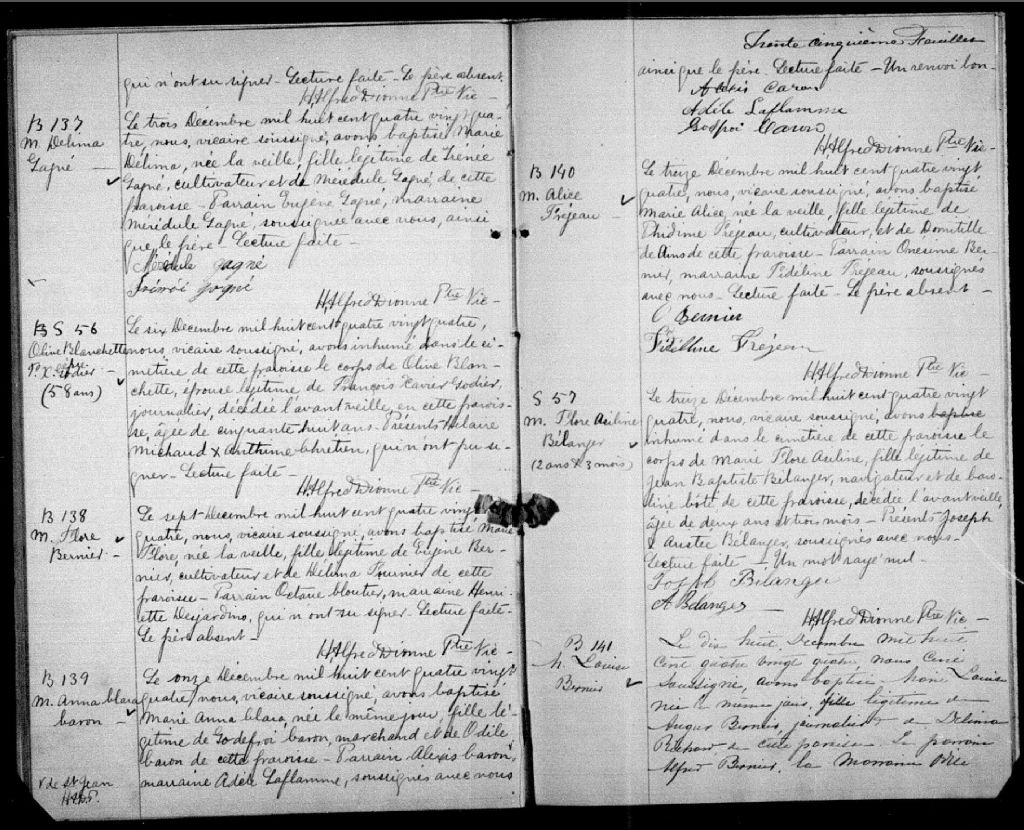 qui n'ont su signer - Lecture faite - Le père absent.
H. Alfred Dionne Ptre Vic -
B 137
M. Délima
Gagné
Le trois Décembre mil huit cent quatre vingt qua-
tre, nous, vicaire soussigné, avons baptisé Marie
Délima, née la veille, fille légitime de Irénée
Gagné, cultivateur et de Mérédule Gagné, de cette
paroisse - Parrain Eugène Gagné, marraine
Mérédule Gagné, soussignée avec nous, ainsi
que le père Lecture faite -
gagné
gagné
H. Alfred Dionne Ptre Vic -
B S 56
Olive Blanchette
F. X. Godier
(58 ans)
Le six Décembre mil huit cent quatre vingt quatre,
nous, vicaire soussigné, avons inhumé dans le ci-
metière de cette paroisse le corps de Olive Blan-
chette, épouse légitime de François Xavier Godier,
journalier, décédée l'avant veille, en cette parois-
se, âgée de cinquante huit ans - Présents Hilaire
Michaud & Arthime Chretien, qui n'ont pu si-
gner - Lecture faite -
H. Alfred Dionne Ptre Vic -
B 138
M. Flore
Bernier -
Le sept Décembre mil huit cent quatre vingt
quatre, nous, vicaire soussigné, avons baptisé Marie
Flore, née la veille, fille légitime de Eugène Ber-
nier, cultivateur et de Délima Fournier de cette
paroisse - Parrain Octave Cloutier, marraine Henri-
ette Desjardins, qui n'ont su signer - Lecture faite -
Le père absent -
H. Alfred Dionne Ptre Vic -
B 139
M. Anna Clara
Caron -
V. de St Jean
Le onze Décembre mil huit cent quatre vingt
quatre, nous, vicaire soussigné, avons baptisé
Marie Anna Clara, née le même jour, fille lé-
gitime de Godefroi Caron, marchand et de Odile
Caron de cette paroisse - Parrain Alexis Caron,
marraine Adèle Laflamme, soussignés avec nous
Trente cinquième Feuillet
ainsi que le père. Lecture faite - Un renvoi bon -
Alexis Caron
Adèle Laflamme
Godfroi Caron
H. Alfred Dionne Ptre Vic -
B 140
M. Alice
Fréjeau -
Le treize Décembre mil huit cent quatre vingt
quatre, nous, vicaire soussigné, avons baptisé
Marie Alice, née la veille, fille légitime de
Phidime Fréjeau, cultivateur, et de Domitille
de Ains de cette paroisse - Parrain Onesime Ber-
nier, marraine Fidéline Fréjeau, soussignés
avec nous - Lecture faite - Le père absent -
O Bernier
Fidelline Fréjeau
H. Alfred Dionne Ptre Vic -
S 57
M. Flore Auline
Bélanger
(2 ans & 3 mois)
Le treize Décembre mil huit cent quatre vingt
quatre, nous, vicaire soussigné, avons baptisé
inhumé dans le cimetière de cette paroisse le
corps de Marie Flore Auline, fille légitime de
Jean Baptiste Bélanger, navigateur et de Caro-
line Côté de cette paroisse, décédée l'avant veille,
âgée de deux ans et trois mois - Présents Joseph
& Austée Bélanger, soussignés avec nous -
Lecture faite - Un mot rayé nul -
Joseph Bélanger
A Bélanger
H. Alfred Dionne Ptre Vic -
B 141
M. Louise
Bernier
Le dix huit Décembre mil huit
cent quatre vingt quatre, nous Curé
soussigné, avons baptisé Marie Louise
née le même jour, fille légitime de
Auger Bernier, journalier & de Délima
Richard de cette paroisse. Le parrain
Alfred Bernier, la Marraine